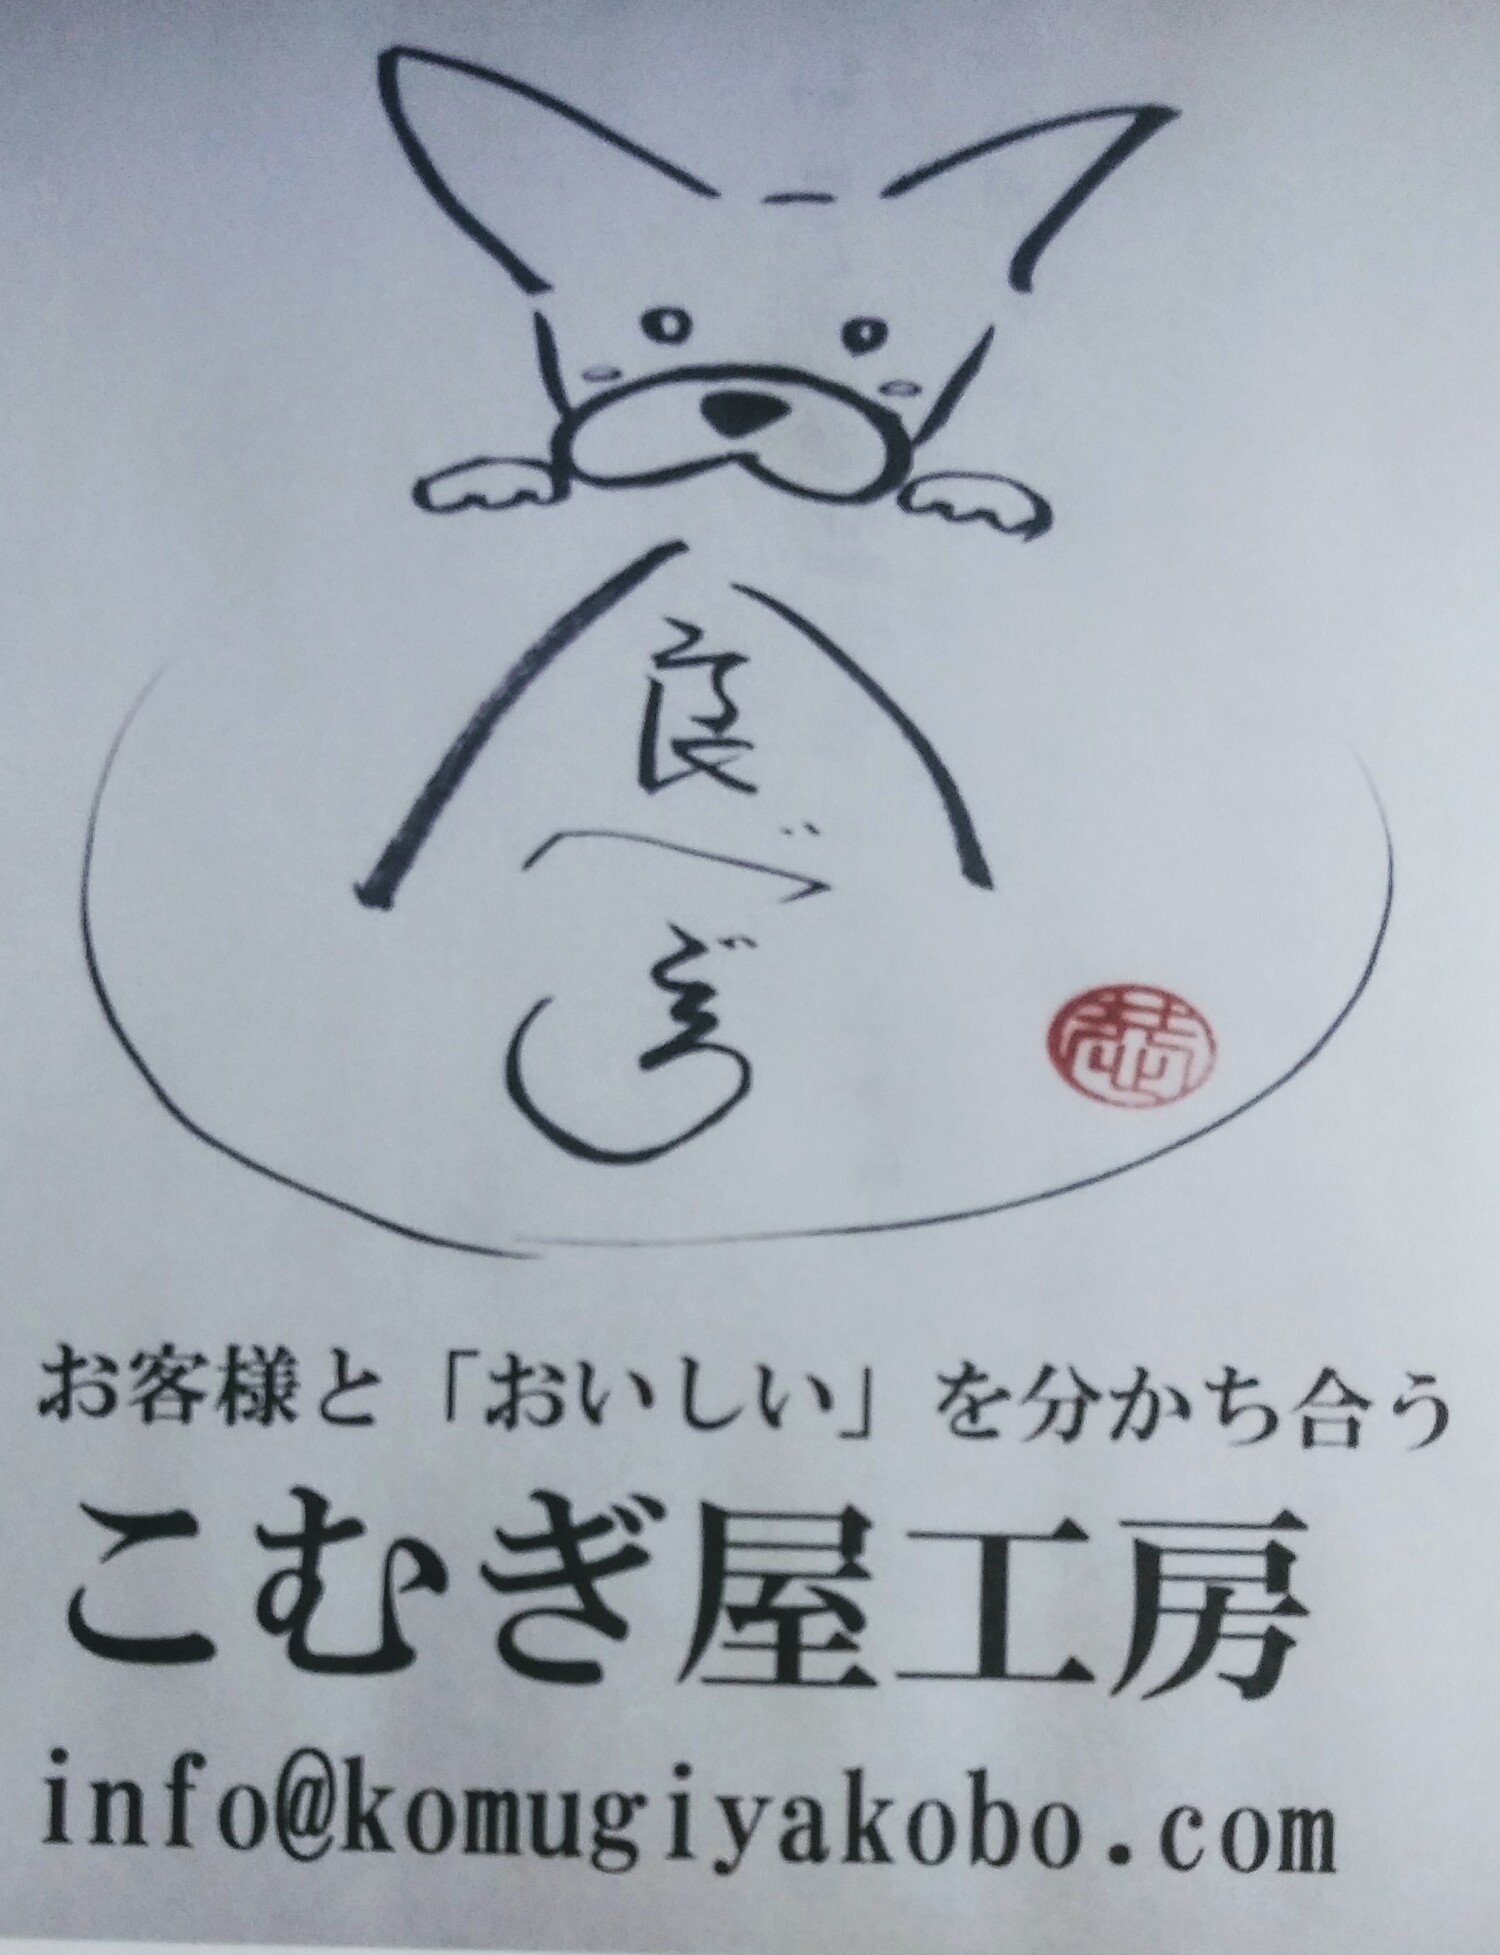 食べごろ
お客様と「おいしい」を分かち合う
こむぎ屋工房
info@komugiyakobo.com